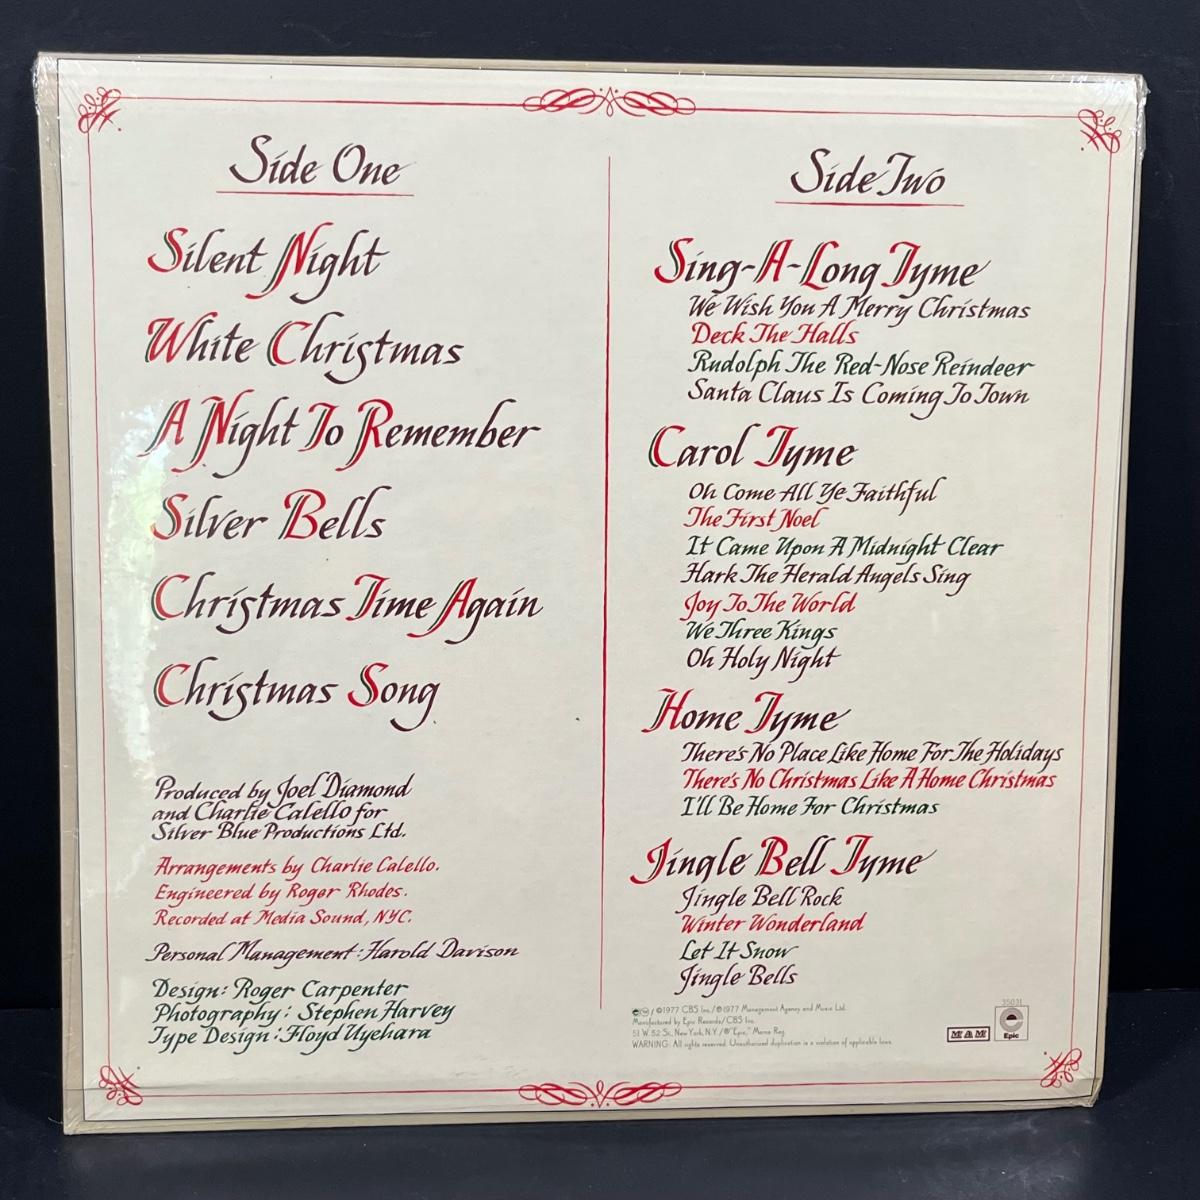 Side One
Silent Night
White Christmas
A Night To Remember
Silver Bells
Christmas Time Again
Christmas Song
Produced by Joel Diamond
and Charlie Calello for
Silver Blue Productions Ltd.
Arrangements by Charlie Calello.
Engineered by Roger Rhodes.
Recorded at Media Sound, NYC.
Personal Management: Harold Davison
Design: Roger Carpenter
Photography: Stephen Harvey
Type Design: Floyd Uyehara
Side Two
Sing-A-Long Tyme
We Wish You A Merry Christmas
Deck The Halls
Rudolph The Red-Nose Reindeer
Santa Claus Is Coming To Town
Carol Tyme
Oh Come All Ye Faithful
The First Noel
It Came Upon A Midnight Clear
Hark The Herald Angels Sing
Joy To The World
We Three Kings
Oh Holy Night
Home Tyme
There's No Place Like Home For The Holidays
There's No Christmas Like A Home Christmas
I'll Be Home For Christmas
Jingle Bell Tyme
Jingle Bell Rock
Winter Wonderland
Let It Snow
Jingle Bells
©1977 CBS Inc./℗1977 Management Agency and Music Ltd.
Manufactured by Epic Records/CBS Inc.
51 W. 52 St., New York, N.Y./®"Epic," Marca Reg.
WARNING: All rights reserved. Unauthorized duplication is a violation of applicable laws.
MAM
35031
Epic